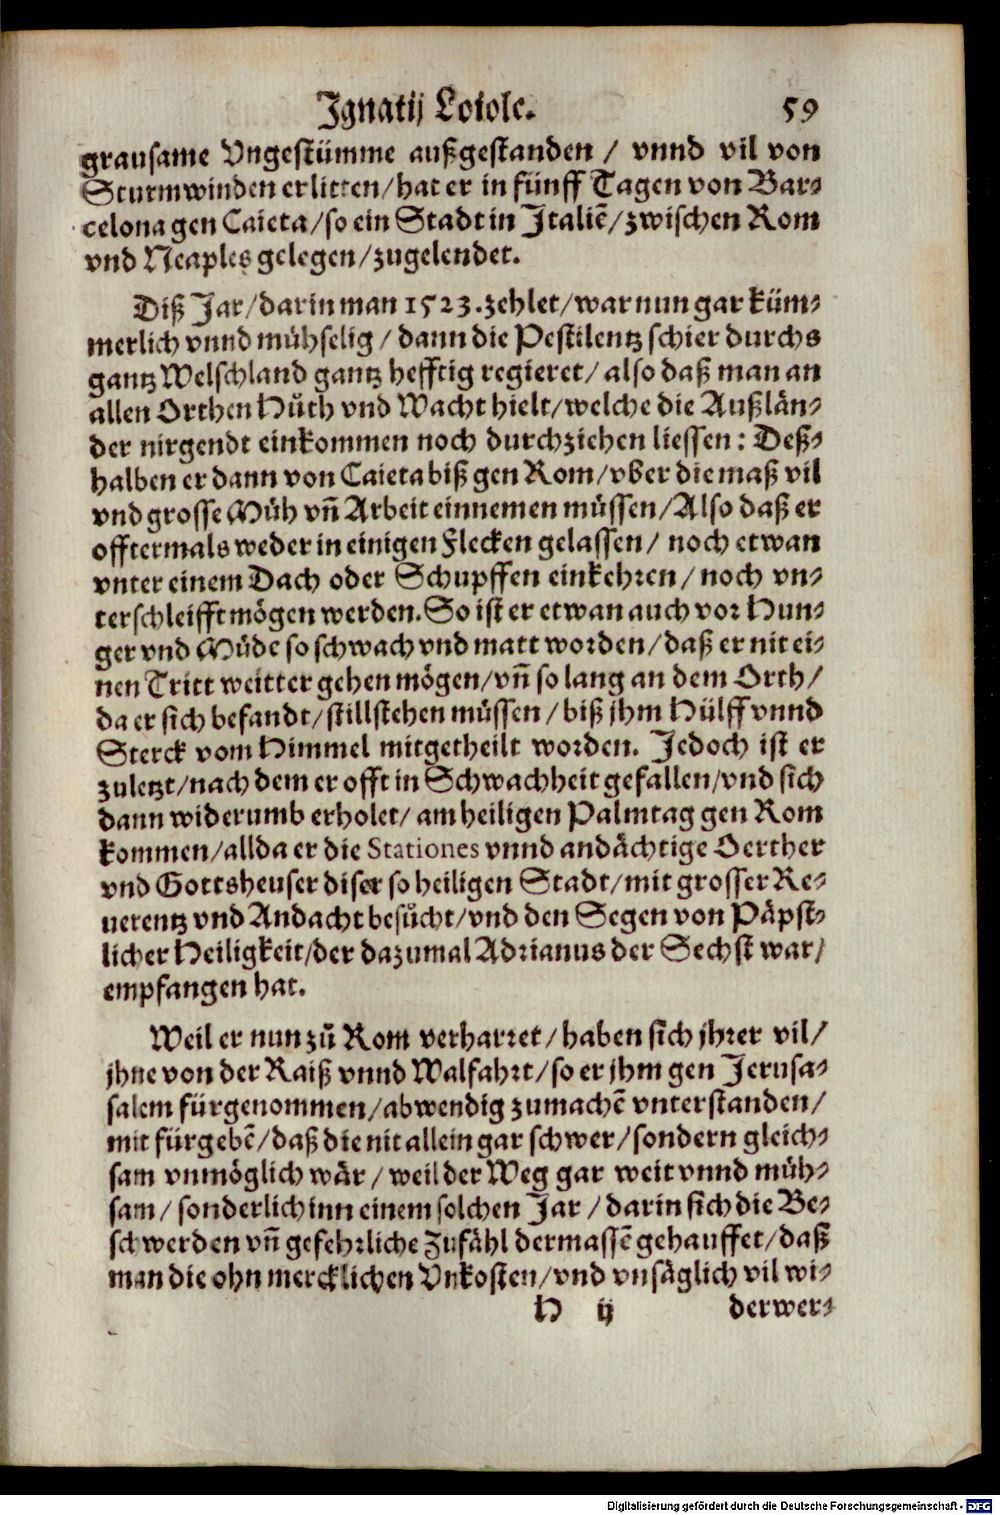 Ignatij Loiole. 59
grausame Vngestümme außgestanden / vnnd vil von
Sturmwinden erlitten / hat er in fünff Tagen von Bar⸗
celona gen Caieta / so ein Stadt in Italiē / zwischen Rom
vnd Neaples gelegen / zugelendet.
Diß Jar / darin man 1523. zehlet / war nun gar küm⸗
merlich vnnd mühselig / dann die Pestilentz schier durchs
gantz Welschland gantz hefftig regieret / also daß man an
allen Orthen Hůth vnd Wacht hielt / welche die Außlän⸗
der nirgendt einkommen noch durchziehen liessen: Deß⸗
halben er dann von Caieta biß gen Rom / vber die maß vil
vnd grosse Müh vñ Arbeit einnemen müssen / Also daß er
offtermals weder in einigen Flecken gelassen / noch etwan
vnter einem Dach oder Schupffen einkehren / noch vn⸗
terschleifft mögen werden. So ist er etwan auch vor Hun⸗
ger vnd Müde so schwach vnd matt worden / daß er nit ei⸗
nen Tritt weitter gehen mögen / vñ so lang an dem Orth /
da er sich befandt / stillstehen müssen / biß jhm Hülff vnnd
Sterck vom Himmel mitgetheilt worden. Jedoch ist er
zuletzt / nach dem er offt in Schwachheit gefallen / vnd sich
dann widerumb erholet / am heiligen Palmtag gen Rom
kommen / allda er die Stationes vnnd andächtige Oerther
vnd Gottsheuser diser so heiligen Stadt / mit grosser Re⸗
uerentz vnd Andacht besůcht / vnd den Segen von Päpst⸗
licher Heiligkeit / der dazumal Adrianus der Sechst war /
empfangen hat.
Weil er nun zů Rom verharret / haben sich jhrer vil /
jhne von der Raiß vnnd Walfahrt / so er jhm gen Jerusa⸗
salem fürgenommen / abwendig zumachē vnterstanden /
mit fürgebē / daß die nit allein gar schwer / sondern gleich⸗
sam vnmöglich wär / weil der Weg gar weit vnnd müh⸗
sam / sonderlich inn einem solchen Jar / darin sich die Be⸗
schwerden vñ gefehrliche Zufähl dermassē gehauffet / daß
man die ohn mercklichen Vnkosten / vnd vnsäglich vil wi⸗
H ij derwer⸗
Digitalisierung gefördert durch die Deutsche Forschungsgemeinschaft - DFG